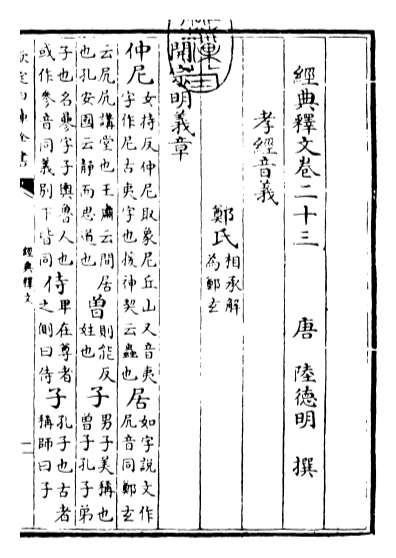 經典釋文卷二十三 唐 陸德明 撰
孝經音義
鄭氏 相承解為鄭玄
開宗明義章
仲尼 女持反仲尼取象尼丘山又音夷字作尼古夷字也援神契云蟲也 居 如字說文作凥音同鄭玄
云凥凥講堂也王肅云閒居也孔安國云靜而思道也 曾 則能反姓也 子 男子美稱也曾子孔子弟
子也名參字子輿魯人也或作參音同義別下皆同 侍 卑在尊者之側曰侍 子 孔子也古者稱師曰子
欽定四庫全書 經典釋文 一